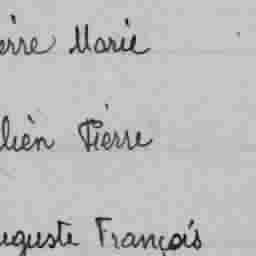 erre Marie
lien Pierre
uguste François